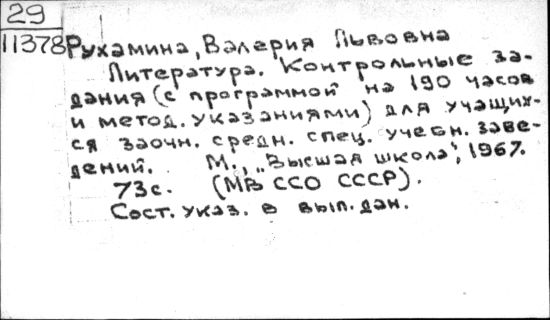 29
11378
Рухамина, Валерия Львовна
Литература. Контрольные за-
дания (с программой на 190 часов
и метод. указаниями) для учащих-
ся заочн. средн. спец. учебн. заве-
дений. М., „Высшая школа", 1967.
73с. (МВ ССО СССР).
Сост. указ. в вып. дан.